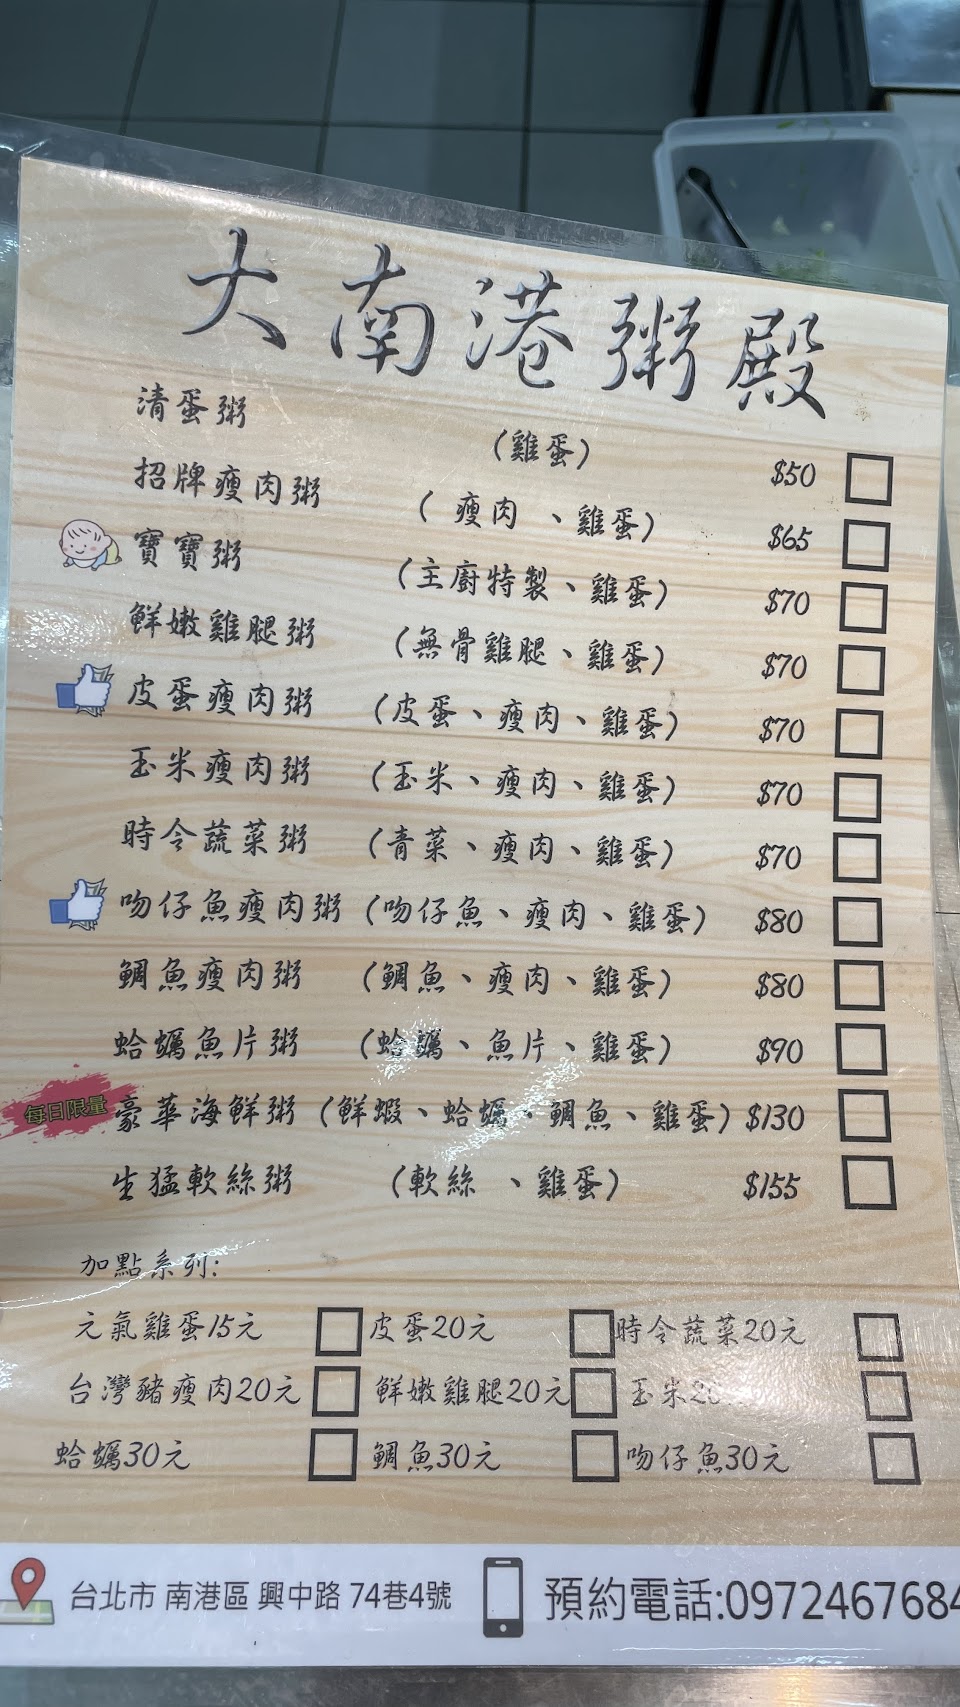 大南港粥殿
清蛋粥 (雞蛋) $50
招牌瘦肉粥 (瘦肉、雞蛋) $65
寶寶粥 (主廚特製、雞蛋) $70
鮮嫩雞腿粥 (無骨雞腿、雞蛋) $70
皮蛋瘦肉粥 (皮蛋、瘦肉、雞蛋) $70
玉米瘦肉粥 (玉米、瘦肉、雞蛋) $70
時令蔬菜粥 (青菜、瘦肉、雞蛋) $70
吻仔魚瘦肉粥 (吻仔魚、瘦肉、雞蛋) $80
鯛魚瘦肉粥 (鯛魚、瘦肉、雞蛋) $80
蛤蠣魚片粥 (蛤蠣、魚片、雞蛋) $90
每日限量 豪華海鮮粥 (鮮蝦、蛤蠣、鯛魚、雞蛋) $130
生猛軟絲粥 (軟絲、雞蛋) $155
加點系列:
元氣雞蛋15元 皮蛋20元 時令蔬菜20元
台灣豬瘦肉20元 鮮嫩雞腿20元 玉米20
蛤蠣30元 鯛魚30元 吻仔魚30元
台北市 南港區 興中路 74巷4號 預約電話:097246768